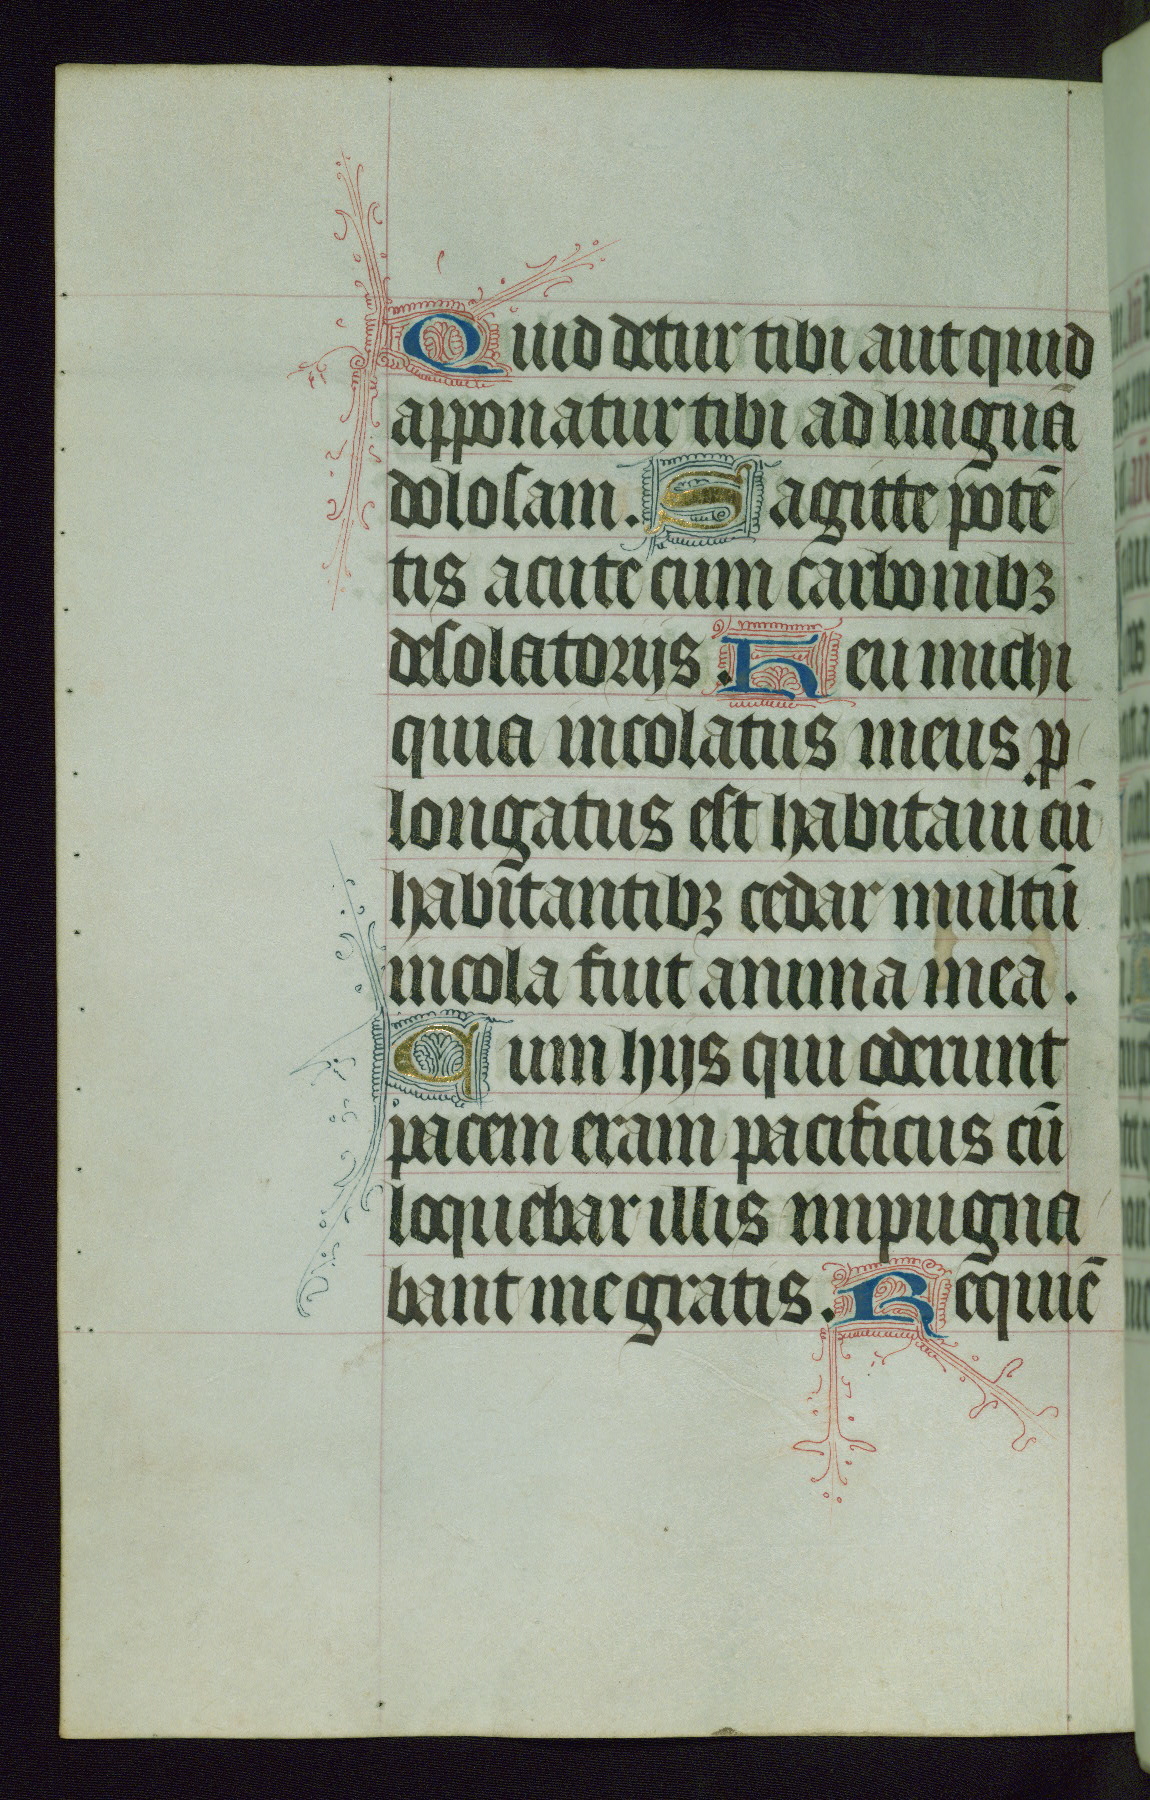 Quid detur tibi aut quid
apponatur tibi ad linguā
dolosam. Sagitte potē
tis acute cum carbonibꝫ
desolatorijs. Heu michi
quia incolatus meus ꝓ
longatus est habitaui cū
habitantibꝫ cedar multū
incola fuit anima mea.
Cum hijs qui oderunt
pacem eram pacificus cū
loquebar illis impugna
bant me gratis. Requiē